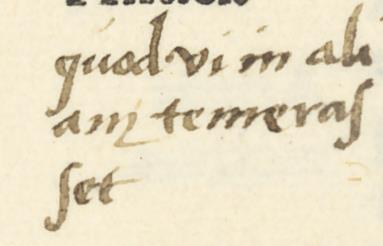 quod vi in ali
am temeraſ
ſet